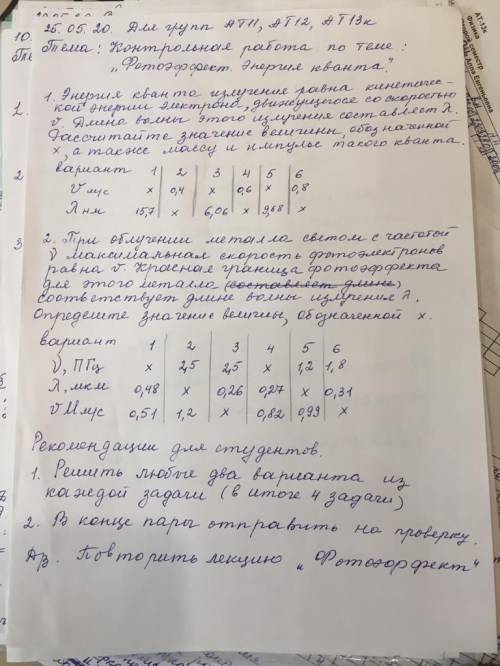 25.05.20. Для групп АТ11, АТ12, АТ13к
Тема: Контрольная работа по теме:
„Фотоэффект. Энергия кванта".
1. Энергия кванта излучения равна кинетичес-
кой энергии электрона, движущегося со скоростью
v. Длина волны этого излучения составляет λ.
Рассчитайте значение величины, обозначенной
x, а также массу и импульс такого кванта.
вариант 1 2 3 4 5 6
v Мм/с x 0,4 x 0,6 x 0,8
λ нм 15,7 x 6,06 x 9,68 x
2. При облучении металла светом с частотой
ν максимальная скорость фотоэлектронов
равна v. Красная граница фотоэффекта
для этого металла (составляет длине)
соответствует длине волны излучения λ.
Определите значение величины, обозначенной x.
вариант 1 2 3 4 5 6
ν, ПГц x 2,5 2,5 x 1,2 1,8
λ, мкм 0,48 x 0,26 0,27 x 0,31
v Мм/с 0,51 1,2 x 0,82 0,99 x
Рекомендации для студентов.
1. Решить любые два варианта из
каждой задачи (в итоге 4 задачи)
2. В конце пары отправить на проверку.
Дз. Повторить лекцию „Фотоэффект"